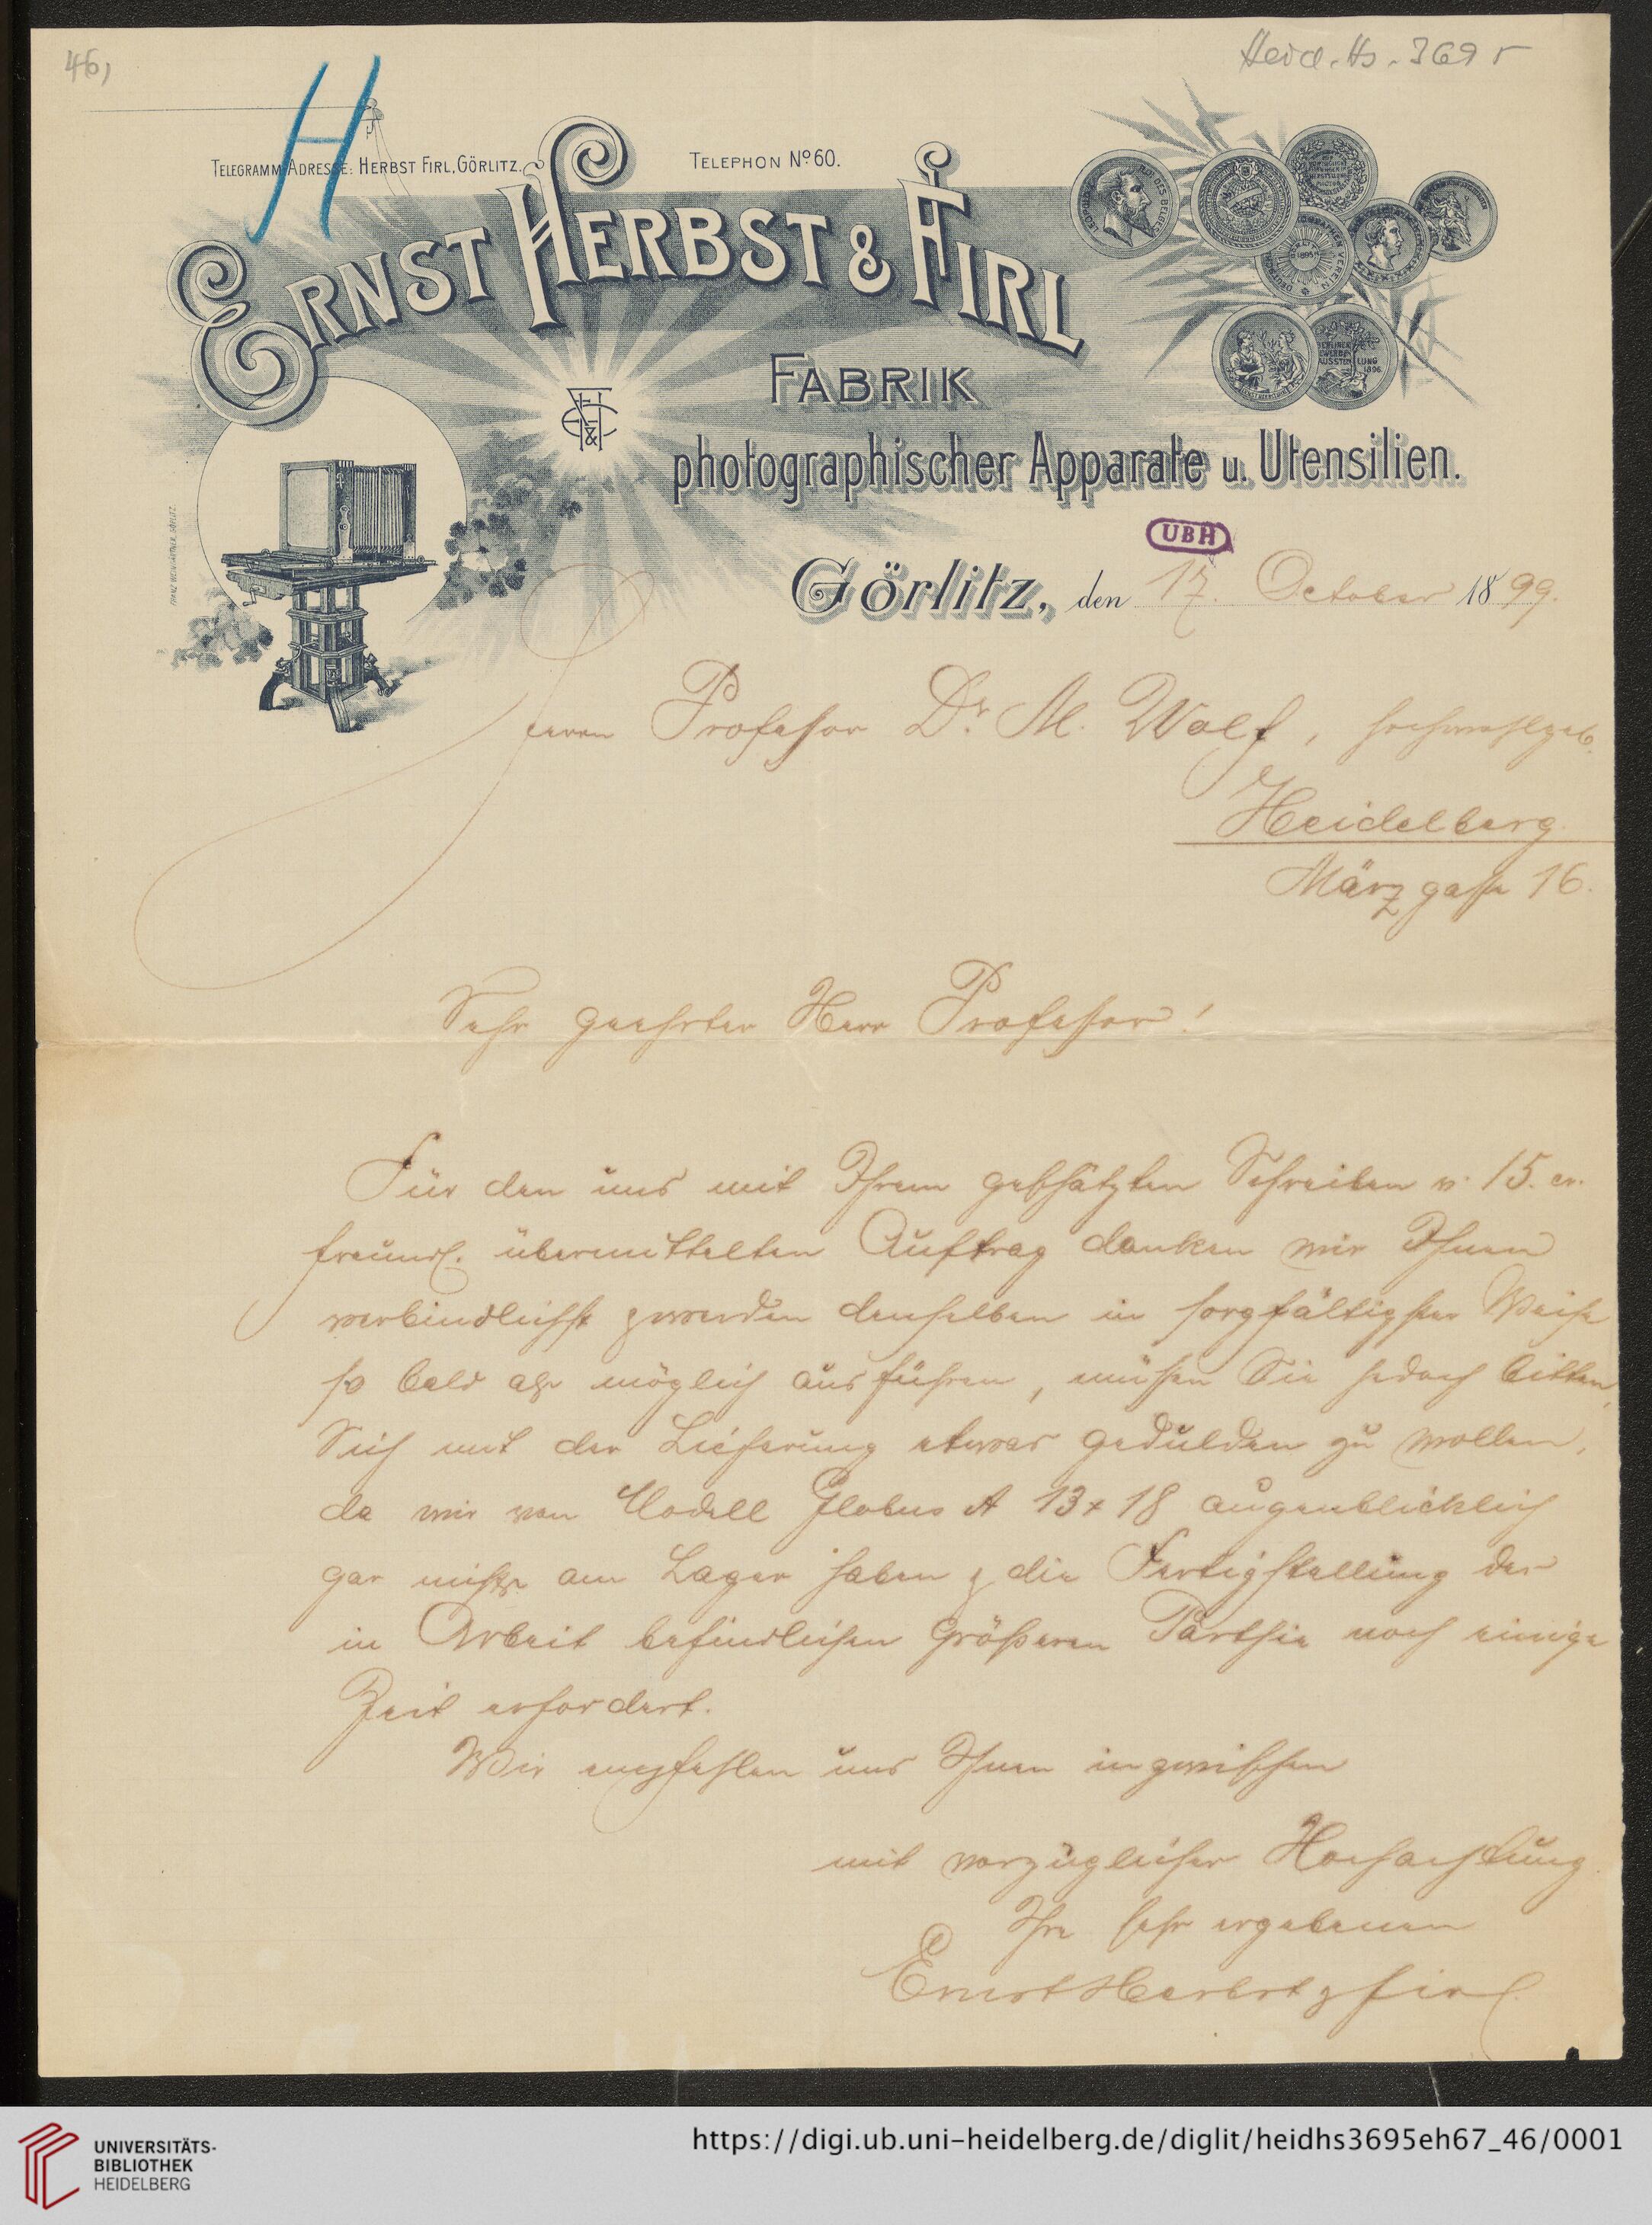 46)
Heid. Hs. 3695
H
TELEGRAMM-ADRESSE: HERBST FIRL, GÖRLITZ.
TELEPHON Nº 60.
ERNST HERBST & FIRL
FABRIK
photographischer Apparate u. Utensilien.
LEOPOLD II
ROI DES BELGES
1895
BERLINER
GEWERBE
AUSSTELLUNG
1896
EH&F
FRANZ WEINGÄRTNER, GÖRLITZ.
UBH
Görlitz, den 17. October 1899.
Herrn Professor Dr. M. Wolf, Hochwohlgeb.
Heidelberg
Märzgasse 16.
Sehr geehrter Herr Professor!
Für den uns mit Ihrem geschätzten Schreiben v. 15. cr.
freundl. übermittelten Auftrag danken wir Ihnen
verbindlichst & werden denselben in sorgfältigster Weise
so bald als möglich ausführen, müssen Sie jedoch bitten,
Sich mit der Lieferung etwas gedulden zu wollen,
da wir von Modell Globus A 13 x 18 augenblicklich
gar nichts am Lager haben & die Fertigstellung der
in Arbeit befindlichen größeren Parthie noch einige
Zeit erfordert.
Wir empfehlen uns Ihnen inzwischen
mit vorzüglicher Hochachtung
Ihre sehr ergebenen
Ernst Herbst & Firl.
UNIVERSITÄTS-
BIBLIOTHEK
HEIDELBERG
https://digi.ub.uni-heidelberg.de/diglit/heidhs3695eh67_46/0001